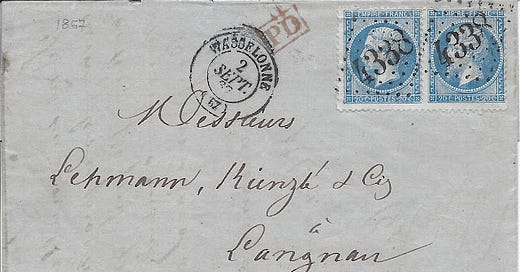 1867
P.D.
WASSELONNE
2
SEPT.
67
(67)
EMPIRE FRANC
4338
20c POSTES 20c
EMPIRE FRANC
4338
20c POSTES 20c
Messieurs
Lehmann, Künzlé & Cie
à
Langnau